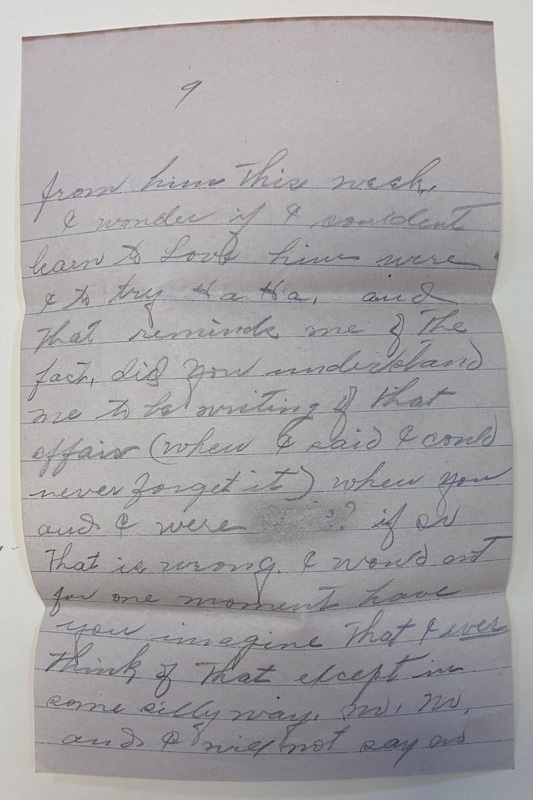 9
from him this week,
I wonder if I couldent
learn to Love him were
I to try Ha Ha, and
that reminds me of the
fact, did you understand
me to be writing of that
affair (when I said I could
never forget it) when you
and I were ? if so
that is wrong. I would not
for one moment have
you imagine that I ever
think of that except in
some silly way. no, no,
and I will not say